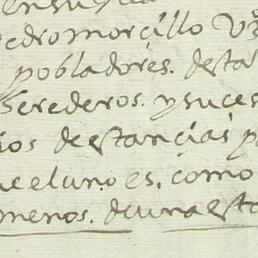 Pedro morcillo Vz
pobladores. desta
herederos. y suces
ios de estancias p
ue el uno es. como
menos. de una esta